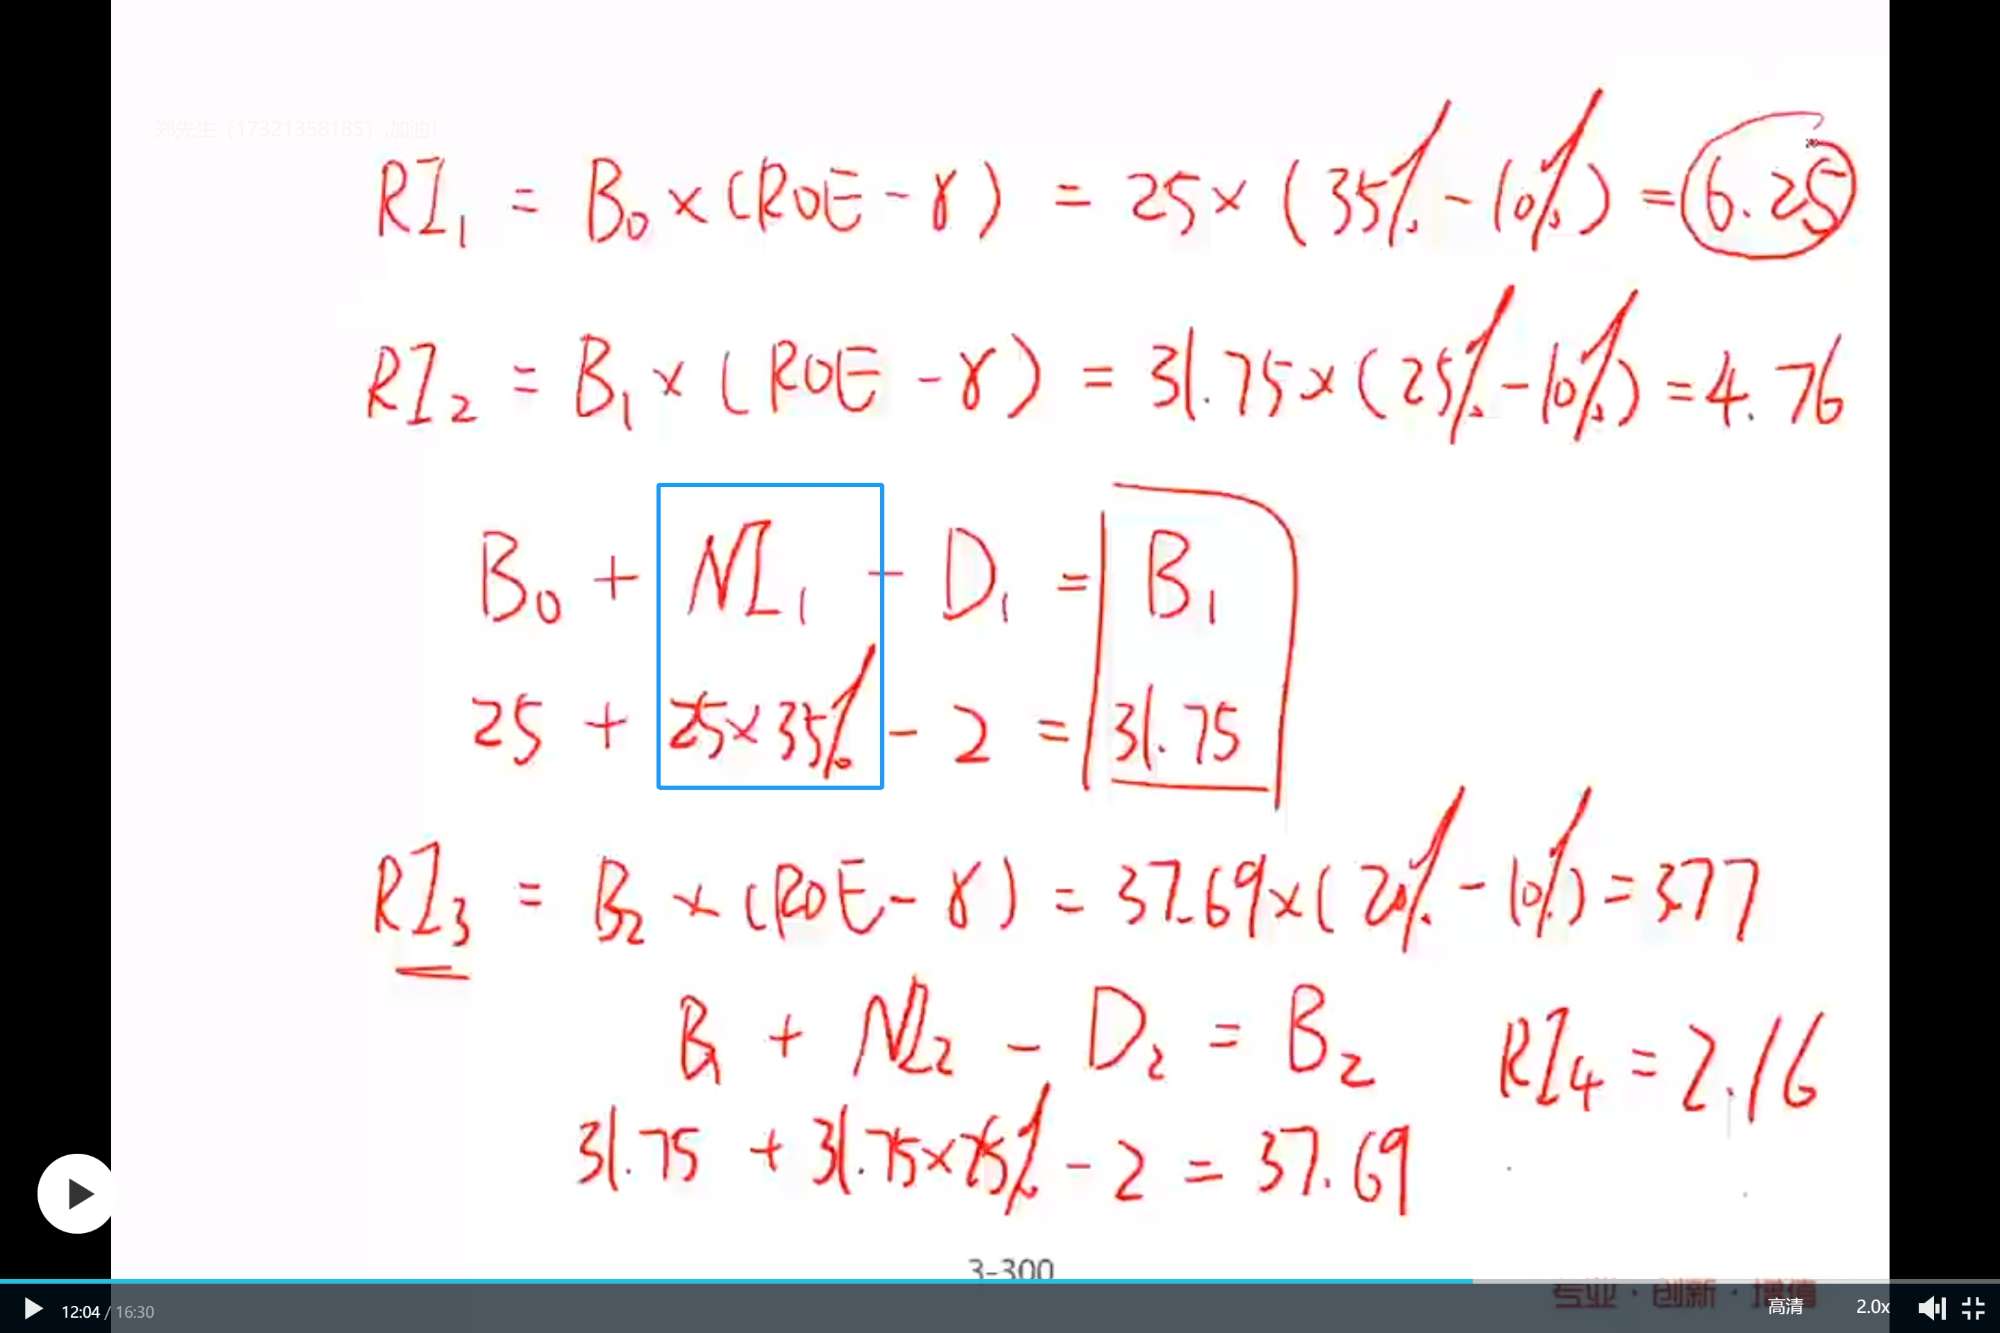 RI₁ = B₀ × (ROE - γ) = 25 × (35% - 10%) = 6.25
RI₂ = B₁ × (ROE - γ) = 31.75 × (25% - 10%) = 4.76
B₀ + NI₁ - D₁ = B₁
25 + 25×35% - 2 = 31.75
RI₃ = B₂ × (ROE - γ) = 37.69 × (20% - 10%) = 3.77
B₁ + NI₂ - D₂ = B₂
RI₄ = 2.16
31.75 + 31.75×25% - 2 = 37.69
3-300
专业·创新·增值
12:04 / 16:30
高清
2.0x